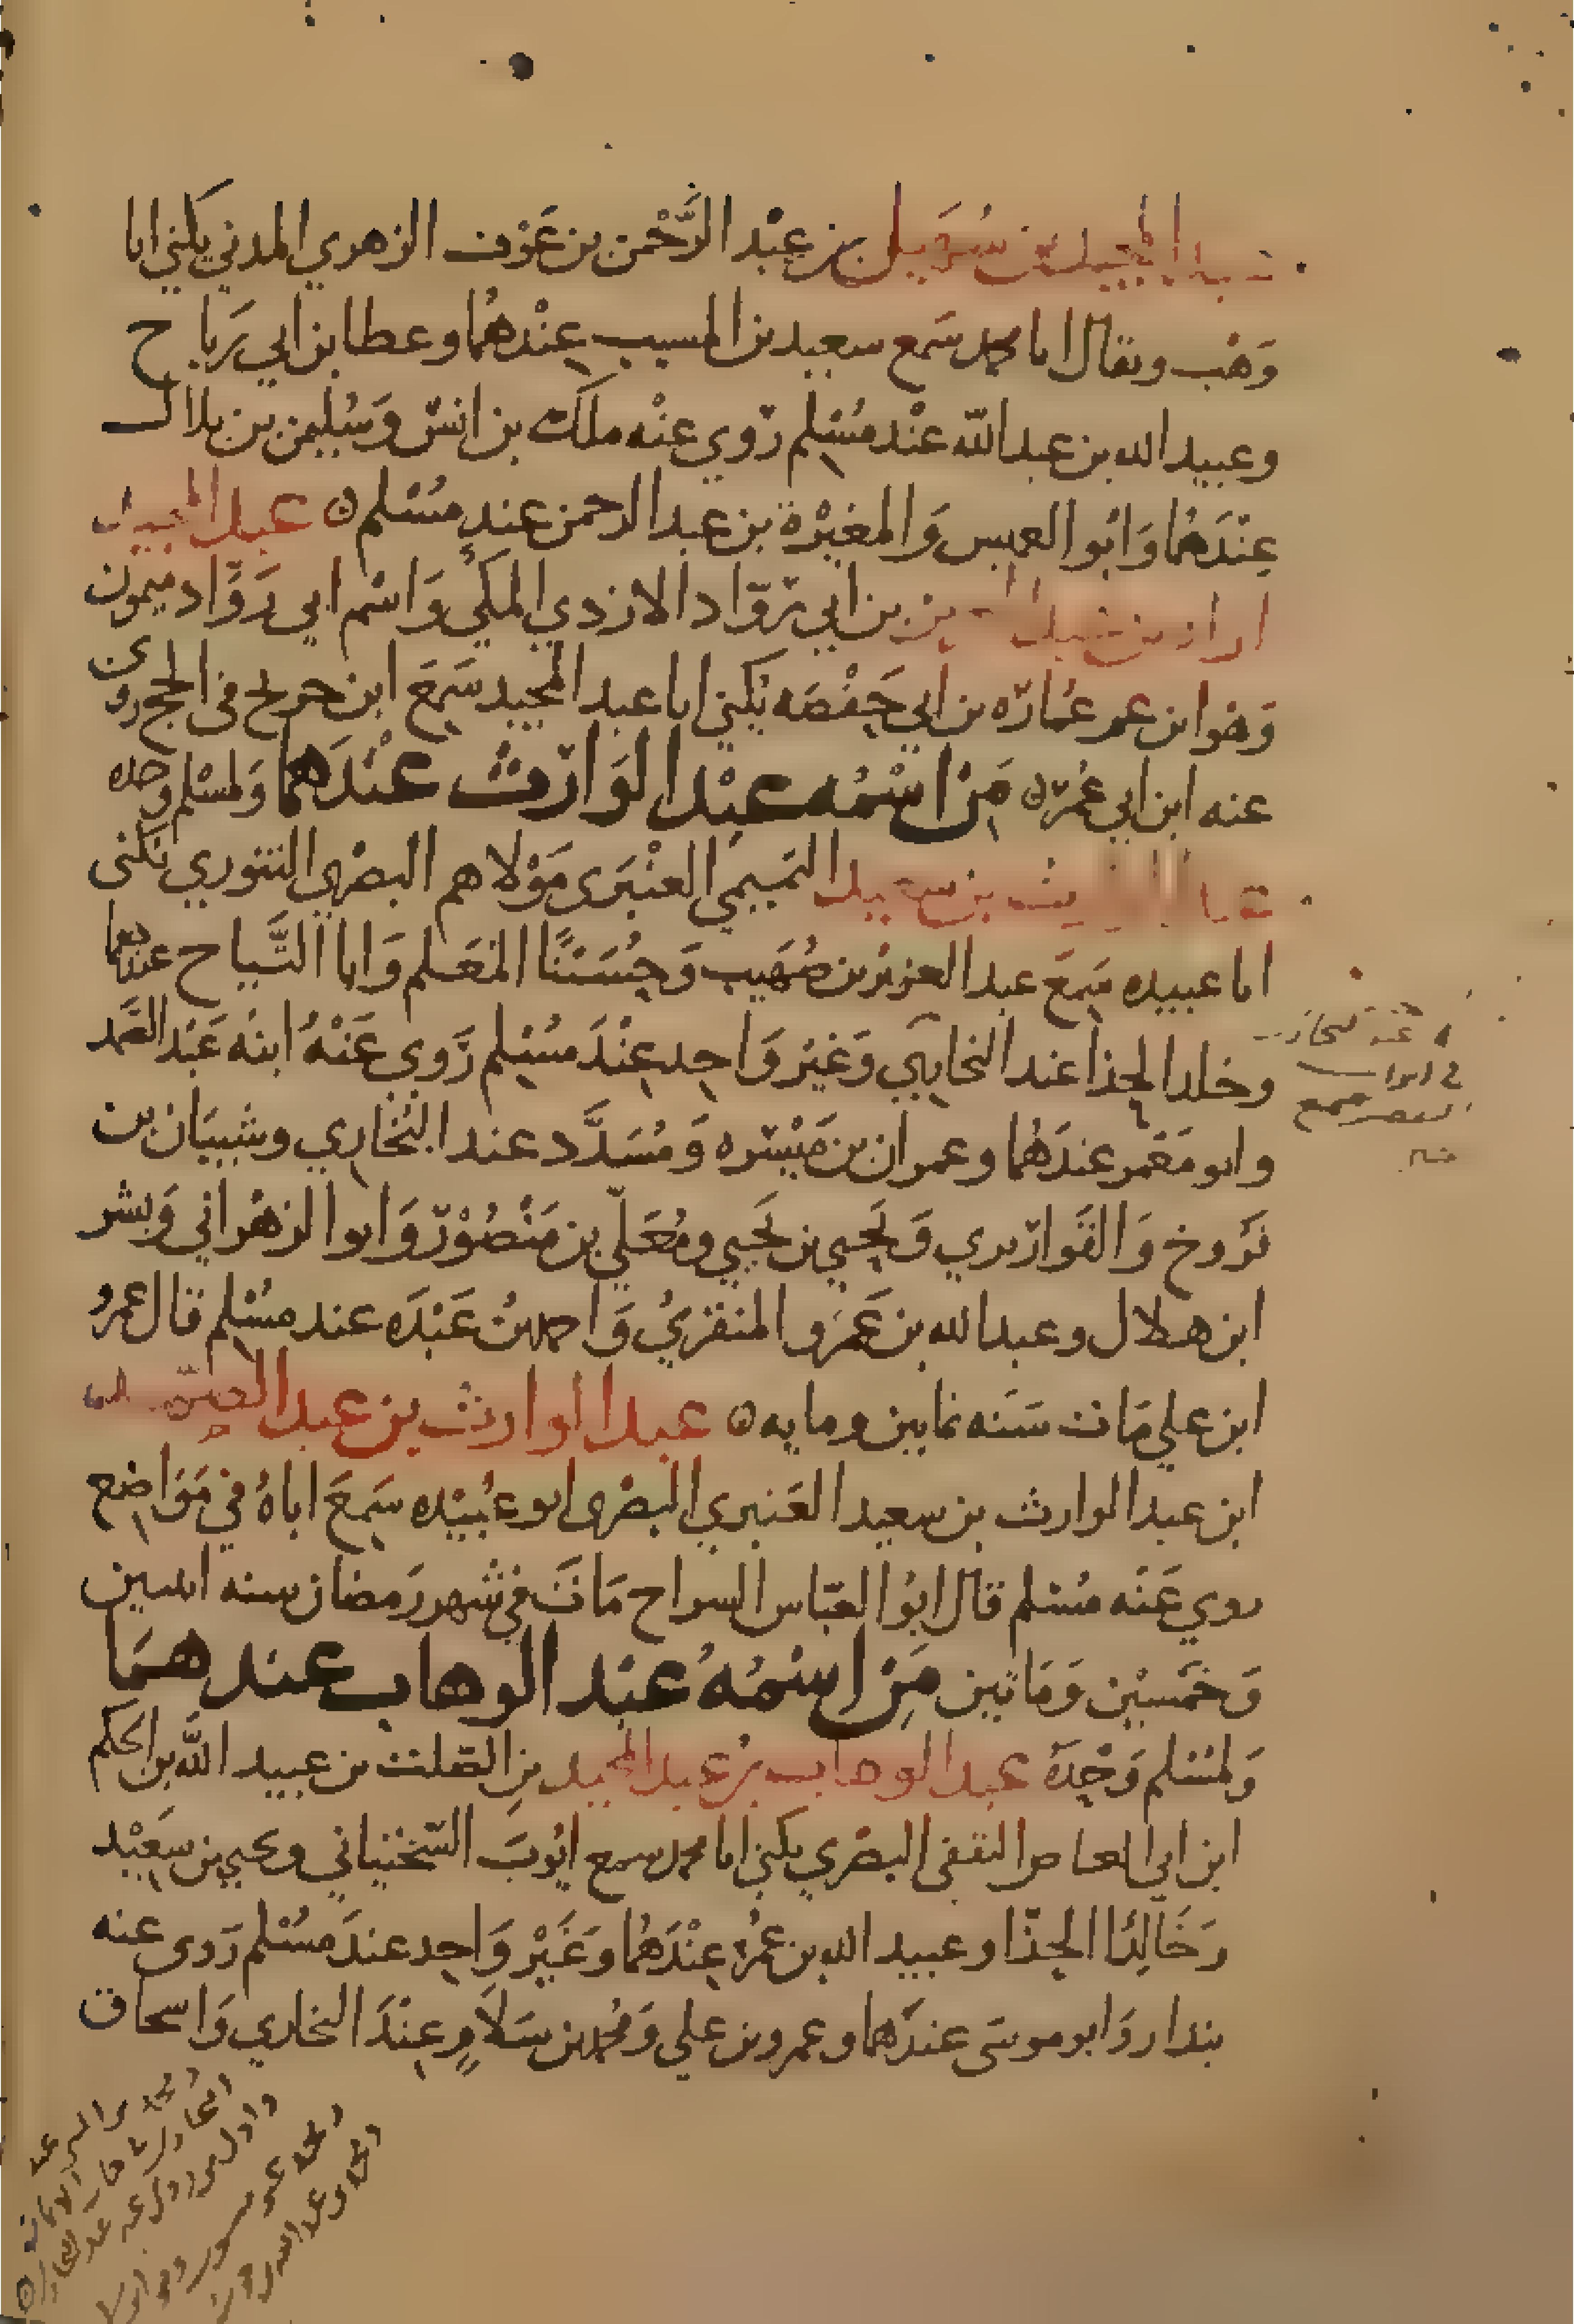 عبد المجيد بن سُهَيل بن عبْد الرَّحْمن بن عَوْف الزهري المدني يكنى ابا
وَهْب ويقال ابا محمد سَمع سعيد بن المسيب عِنْدهُما وعطا بن ابي رَباح
وعبيد الله بن عبد الله عنْد مُسْلم رَوي عنْه ملك بن انسْ وَسُليمن بن بلال
عِنْدَهُما وَابُوا العميس وَالمغيْرة بن عبد الرحمن عند مسْلم ۞ عبد المجيد
بن عبد العزيز بن ابي رَوّاد الازدي المكي وَاسْم ابي رَوَّاد ميمون
وَهُوَ ابن عم عُمارَه بن ابي حَفْصَه يُكنى ابا عبد المجيد سَمِعَ ابن جريج في الحج روى
عنه ابن ابي عُمَر ۞ مَنْ اسْمُه عبْد الوَارْث عنْدَهما وَلمسْلم وحده
عبد الوارث بن سعيد التميمي العنْبَرى مَوْلاهم البصْري التنوري يكنى
ابا عبيده سَمِعَ عبد العزيز بن صُهَيب وَحُسَيْنًا المُعَلم وَابا التَّياح عندهما
وخلد الحذا عند البخاري وَغيْر وَاحِد عِنْدَ مسْلم رَوى عَنْهُ ابنُه عَبْد الصَّمد
وابو مَعْمر عندَهُما وعمران بن مَيْسَره وَمُسَدَّد عند البُخاري وشيبَان بن
فَرُّوخ وَالقَوارْيري وَيَحيى بن يَحيي ومُعَلّي بن مَنْصُوْر وَابوا الزهْراني وَبشر
ابن هلال وعبد الله بن عَمَرو المنقريُ وَاحمد بنُ عَبْدَه عند مسْلم قال عمرو
ابن علي مَات سَنَه ثمانين ومايه ۞ عبد الوارث بن عبد الصمد
ابن عبد الوارث بن سعيد العَنبري البصْرى ابو عُبيْده سَمِعَ اباهُ في مَوَاضع
روي عَنْه مسْلم قال ابُوا العبّاس السراج مَاتَ في شهر رَمضان سنه اثنين
وَخمْسيْن وَمَاتين مَنِ اسْمُهُ عبْد الوهاب عند همَا
وَلمُسْلم وَحْدَهُ عبد الوهاب بن عبد المجيد بن الصّلت بن عبيد اللَّه بن الحكم
ابن ابي العاص الثقفى البصْري يكنى ابا محمد سمع ايُوبَ السّخْتياني ويحيي بن سَعِيْد
وَخَالِدًا الحذّا وعبيد الله بن عُمَر عِنْدَهُما وغَيْر وَاحِد عندَ مسْلم رَوى عنه
بندار وَابو موسَى عندَهما وعمرو بن علي وَمُحمد بن سَلَامٍ عِنْدَ البخاري وَاسحاق